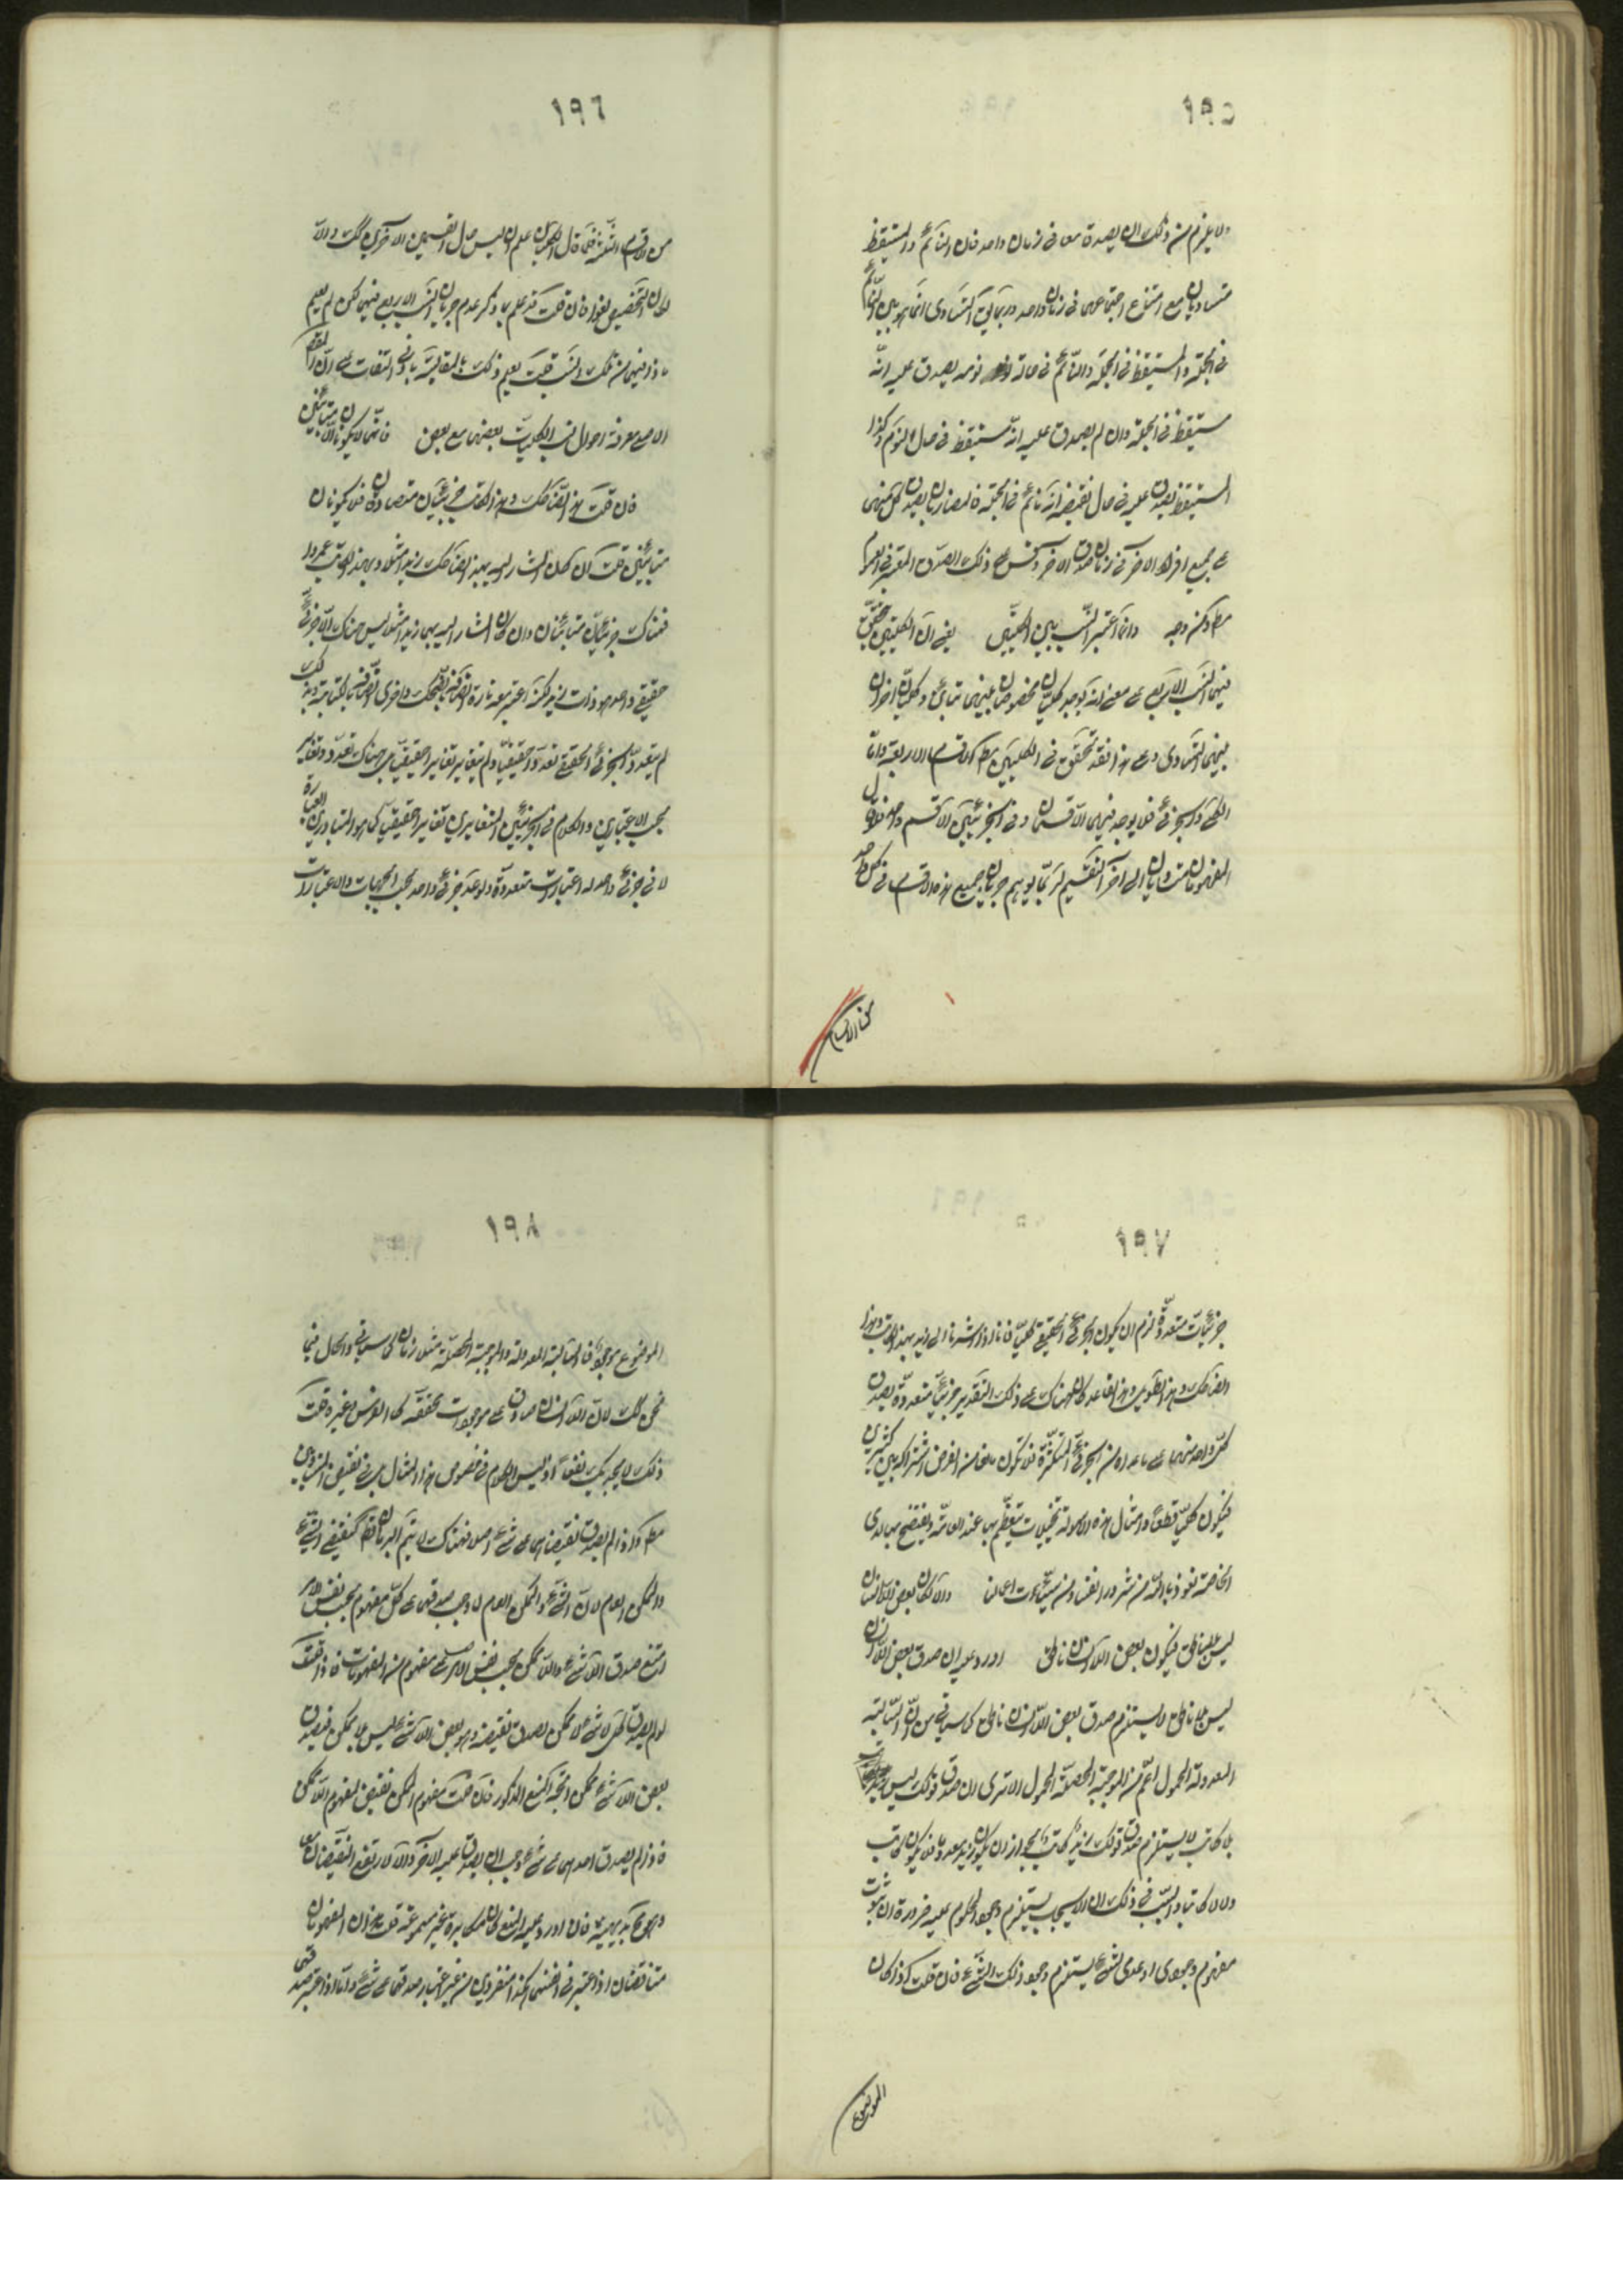 ١٩٥
ولا يلزم من ذلك ان يصدقا معا فى زمان واحد فان النائم والمستيقظ
متساويان مع امتناع اجتماعهما فى زمان واحد وربما يق التساوى انما هو بين النائم
فى الجملة والمستيقظ فى الجملة والنائم فى حالة نومه يصدق عليه انه
مستيقظ فى الجملة وان لم يصدق عليه انه مستيقظ فى حال النوم وكذا
المستيقظ يصدق عليه فى حال تيقظه انه نائم فى الجملة فالمتساويان يصدق كل منهما
على جميع افراد الاخر فى زمان صدق الاخر وقس على ذلك الصدق المعتبر فى العموم
مط ومن وجه وانما اعتبر النسب بين الكليين يعنى ان الكليين يتحقق
فيهما النسب الاربع على معنى انه يوجد كليان مخصوصان بينهما تباين وكليان اخران
بينهما التساوى وعلى هذا فقد تحقق فى الكليين مط الاقسام الاربعة واما
الكلى والجزئى فلا يوجد فيهما الا قسمان وفى الجزئيين الا قسم واحد فلو قال
المفهومان متساويان الى آخر التقسيم لربما يوهم جريان جميع هذه الاقسام فى كل واحد
من الاقسام
١٩٦
من الاقسام الثلثة فلما قال الكليان علم ان ليس حال القسمين الاخرين كك والا
لكان التخصيص لغوا فان قلت قد علم بما ذكر عدم جريان النسب الاربع فيهما لكن لم يعلم
ماذا فيهما من تلك النسب قلت يعلم ذلك بالمقايسة بادنى التفات على ان المقصود
الاصلى معرفة احوال نسب الكليات بعضها مع بعض فانهما لا يكونان الا متباينين
فان قلت هذا الضاحك وهذا الكاتب جزئيان متصادقان فلا يكونان
متباينين قلت ان كان المشار اليه بهذا الضاحك زيدا مثلا وبهذا الكاتب عمروا
فهناك جزئيان متباينان وان كان المشار اليه بهما زيدا مثلا ليس هناك الا جزئى
حقيقى واحد هو ذات زيد لكنه اعتبر معه تارة اتصافه بالضحك واخرى اتصافه بالكتابة وبذلك
لم يتعدد الجزئى الحقيقى تعددا حقيقيا ولم يتغاير تغايرا حقيقيا بل هناك تعدد وتغاير
بحسب الاعتبار والكلام فى الجزئيين المتغايرين تغايرا حقيقيا كما هو المتبادر من العبارة
لا فى جزئى واحد له اعتبارات متعددة ولو عد جزئى واحد بحسب الجهات والاعتبارات
١٩٧
جزئيات متعددة لزم ان يكون الجزئى الحقيقى كليا فانا اذا اشرنا الى زيد بهذا الكاتب وهذا
الضاحك وهذا الطويل وهذا القاعد كان هناك على ذلك التقدير جزئيات متعددة يصدق
كل واحد منها على ما عداه من الجزئى المتكثرة فلا تكون مانعا من فرض اشتراكه بين كثيرين
فيكون كليا قطعا وامثال هذه الاسولة تخييلات يتعظم بها عند العامة ويفتضح بها لدى
الخاصة نعوذ بالله من شرور انفسنا ومن سيئات اعمالنا والا لكان بعض اللاانسان
ليس بلاناطق فيكون بعض اللاانسان ناطق اورد عليه ان صدق بعض اللاانسان
ليس بلا ناطق لا يستلزم صدق بعض اللاانسان ناطق كما سياتى من ان السالبة
المعدولة المحمول اعم من الموجبة المحصلة المحمول الا ترى ان صدق قولك ليس زيد
بلا كاتب لا يستلزم صدق قولك زيد كاتب لجواز ان يكون زيد معدوما فلا يكون كاتب
ولا لا كاتبا والسبب فى ذلك ان الايجاب يستلزم وجود المحكوم عليه ضرورة ان ثبوت
مفهوم وجودى او عدمى لشىء يستلزم وجود ذلك الشىء فان قلت اذا كان
الموضوع
١٩٨
الموضوع موجودا فالسالبة المعدولة والموجبة المحصلة متلازمان كما سياتى والحال فيما
نحن كك لان اللاانسان صادق على موجودات محققة كالفرس وغيره قلت
ذلك لا يجديك نفعا اذ ليس الكلام فى خصوص هذا المثال بل فى نقيض المتساويين
مط واذا لم يصدق نقيضاهما على شىء اصلا فهناك لا يتم البرهان قط كنقيض الشىء
والممكن العام لان الشىء والممكن العام لما وجب صدقهما على كل مفهوم بحسب نفس الامر
امتنع صدق اللاشىء واللاممكن بحسب نفس الامر على مفهوم من المفهومات فاذا قلت
لو لم يصدق كل لا شىء لا ممكن لصدق نقيضه وهو بعض اللاشىء ليس بلا ممكن فيصدق
بعض اللاشىء ممكن اتجه المنع المذكور فان قلت مفهوم الممكن نقيض لمفهوم اللاممكن
فاذا لم يصدق احدهما على شىء وجب ان يصدق عليه الاخر والا لارتفع النقيضان معا
وهو مح بديهة فان اورد عليه المنع كان مكابرة غير مسموعة قلت هذان المفهومان
متناقضان اذا اعتبر فى انفسهما هكذا منفردين من غير اعتبار صدقهما على شىء واما اذا اعتبر صدقهما